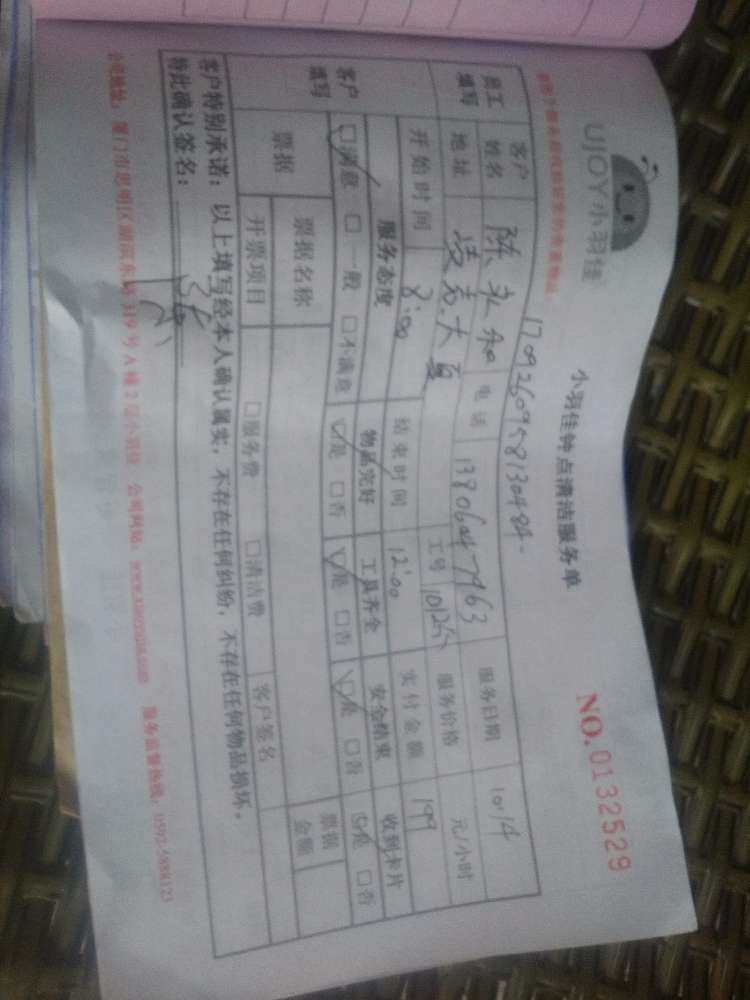 UJOY小羽佳
小羽佳钟点清洁服务单
NO.0132529
1709260958130484
员工填写 客户姓名 电话 13806047963 服务日期 10.14
地址 凌克大夏 工号 服务价格 元/小时
开始时间 8:00 结束时间 12:00 实付金额 199
客户填写 服务态度 物品完好 工具齐全 安全结束 收到卡片
☑满意 □一般 □不满意 ☑是 □否 ☑是 □否 ☑是 □否 ☑是 □否
票据 票据名称 票据金额
开票项目 □服务费 □清洁费 客户签名
客户特别承诺:以上填写经本人确认属实,不存在任何纠纷,不存在任何物品损坏。
特此确认签名:
厦门市思明区湖滨东路319号A幢2层小羽佳 公司网站: 服务监督热线: